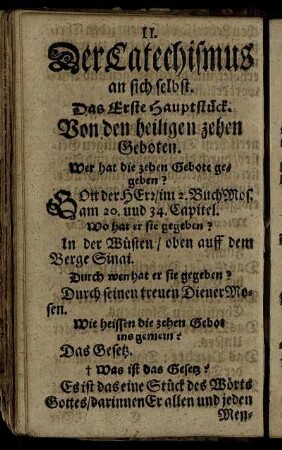 II.
Der Catechismus
an sich selbst.
Das Erste Hauptstück.
Von den heiligen zehen
Geboten.
Wer hat die zehen Gebote ge-
geben?
GOtt der HErr/im 2. Buch Mos.
am 20. und 34. Capitel.
Wo hat er sie gegeben?
In der Wüsten / oben auff dem
Berge Sinai.
Durch wen hat er sie gegeben?
Durch seinen treuen Diener Mo-
sen.
Wie heissen die zehen Gebot
ins gemein?
Das Gesetz.
† Was ist das Gesetz?
Es ist das eine Stück des Worts
Gottes/darinnen Er allen und jeden
Men-